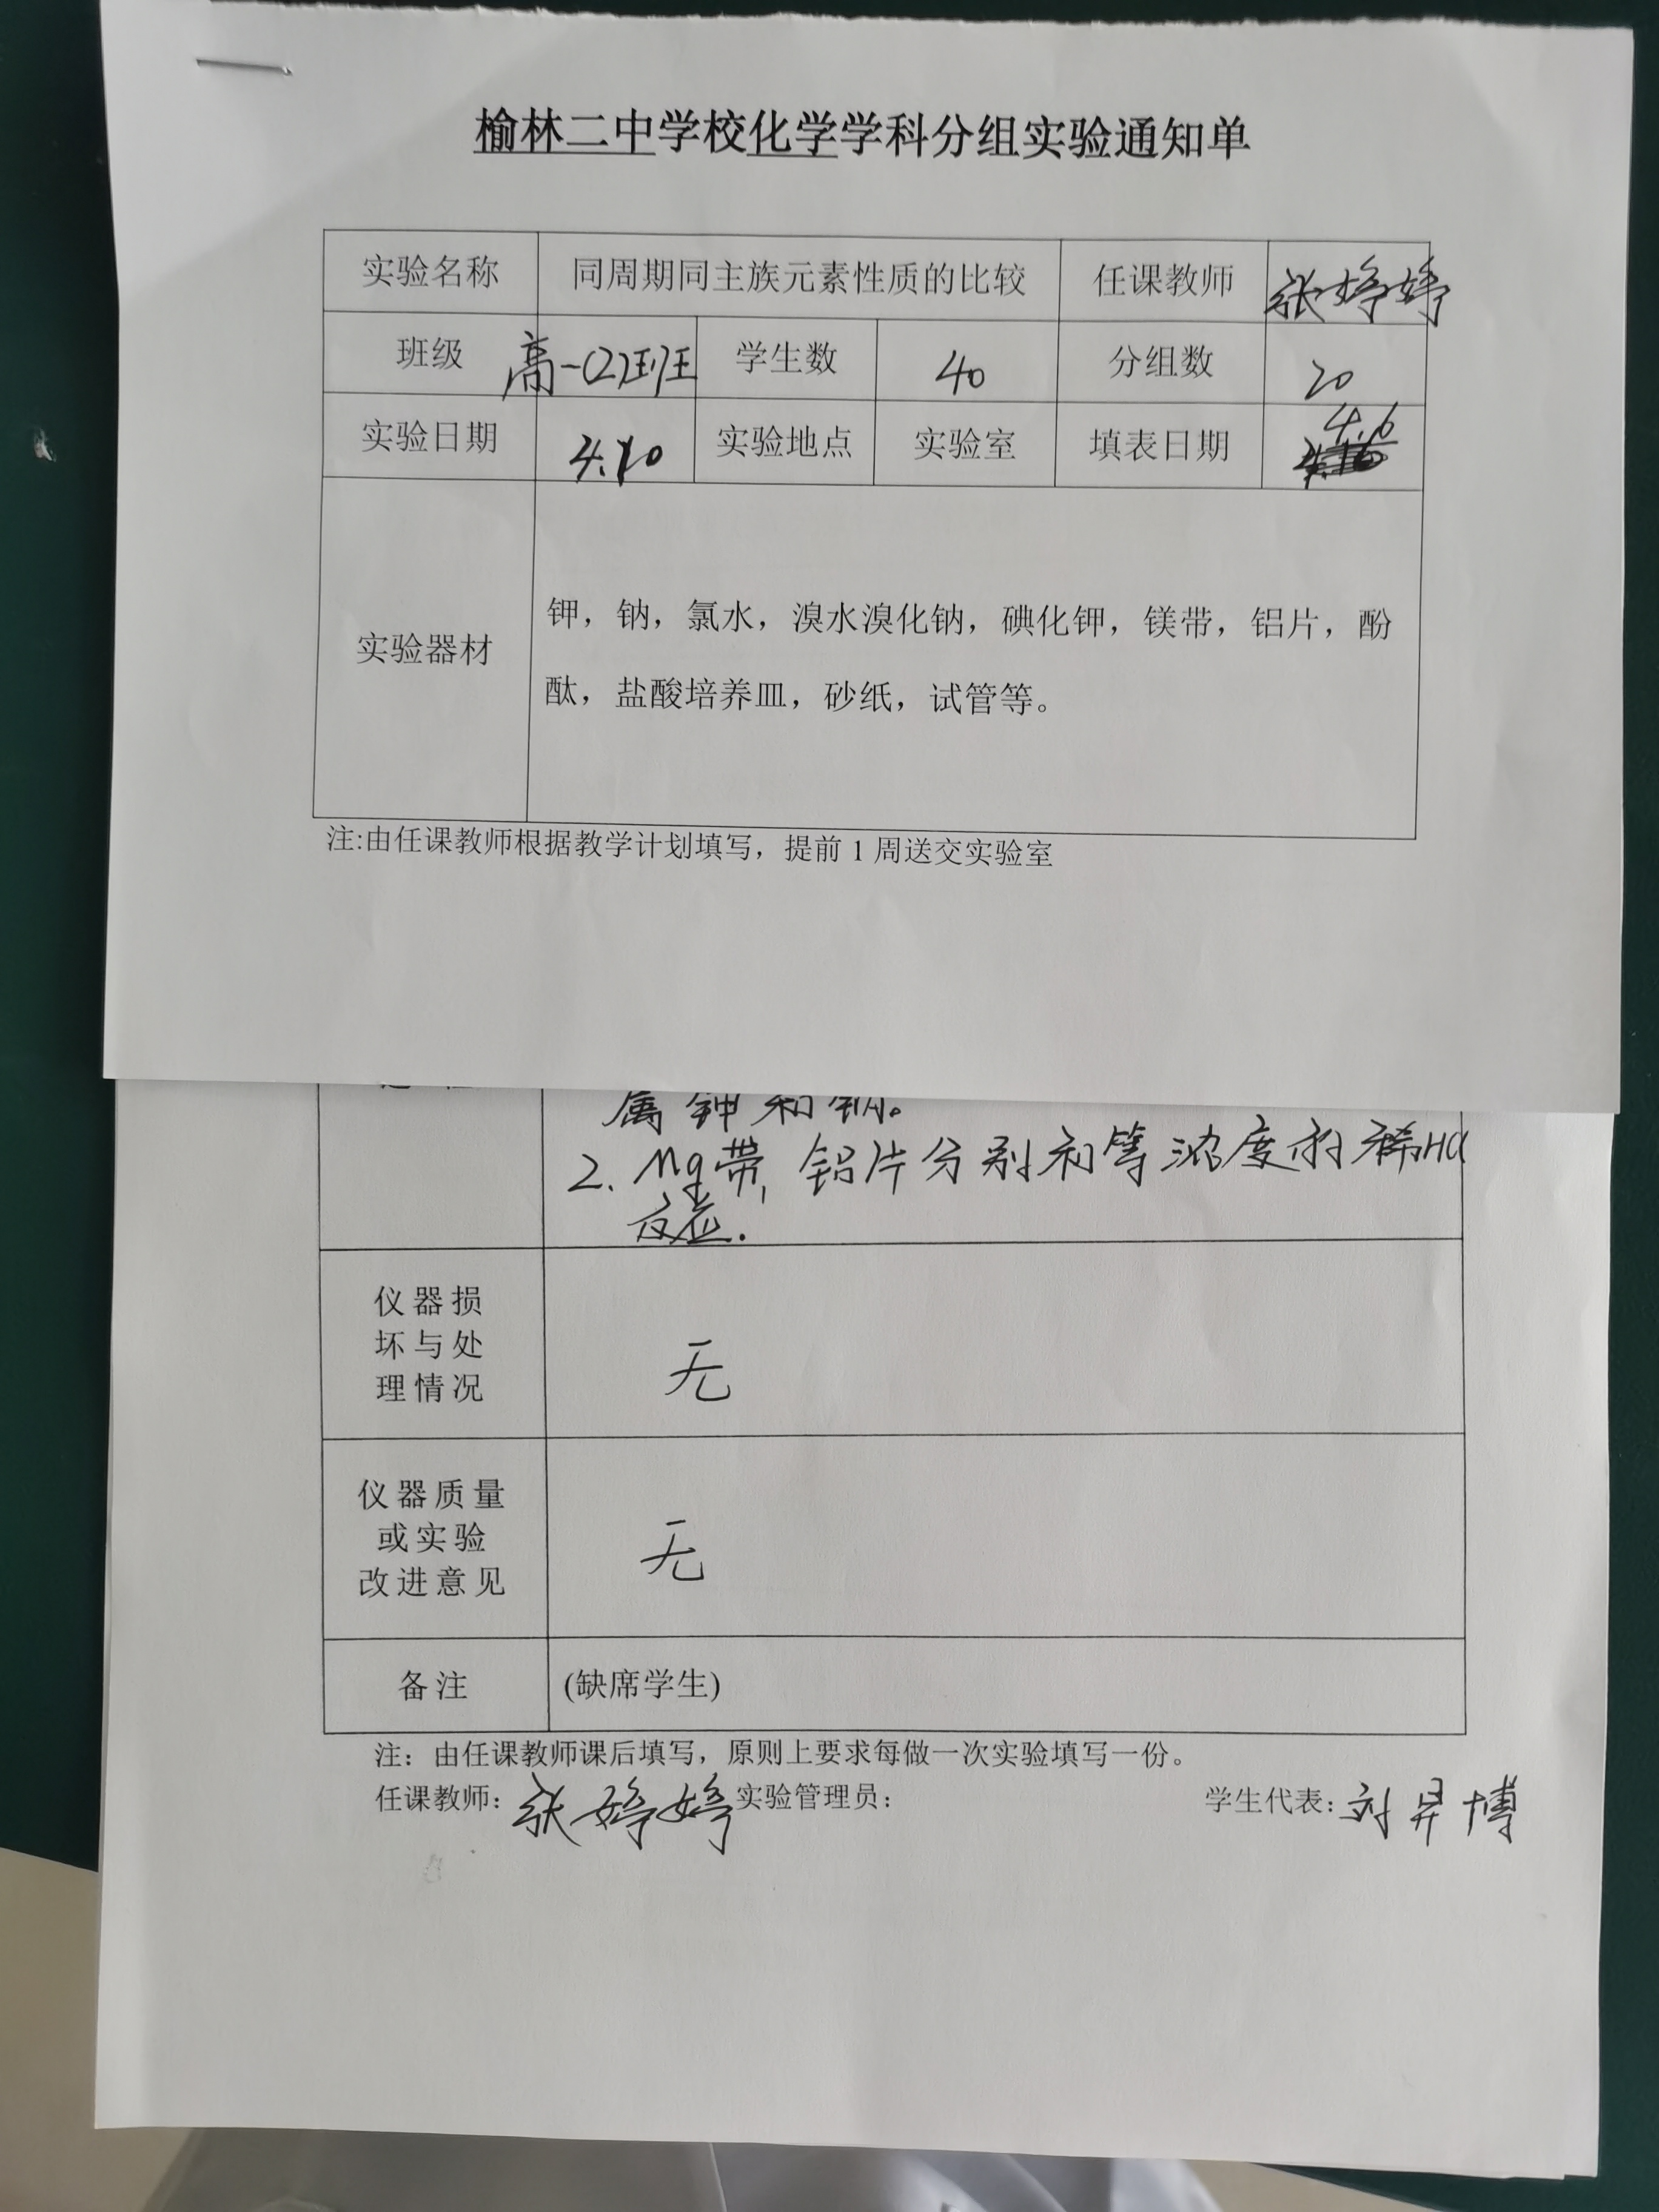 榆林二中学校化学学科分组实验通知单
实验名称 同周期同主族元素性质的比较 任课教师 张婷婷
班级 高一(2)班 学生数 40 分组数 20
实验日期 4.10 实验地点 实验室 填表日期 4.6
实验器材
钾，钠，氯水，溴水溴化钠，碘化钾，镁带，铝片，酚
酞，盐酸培养皿，砂纸，试管等。
注:由任课教师根据教学计划填写，提前 1 周送交实验室
属钾和钠。
2. Mg带, 铝片分别和等浓度的稀HCl
反应.
仪器损
坏与处
理情况
无
仪器质量
或实验
改进意见
无
备注 (缺席学生)
注：由任课教师课后填写，原则上要求每做一次实验填写一份。
任课教师: 张婷婷 实验管理员: 学生代表: 刘昇博